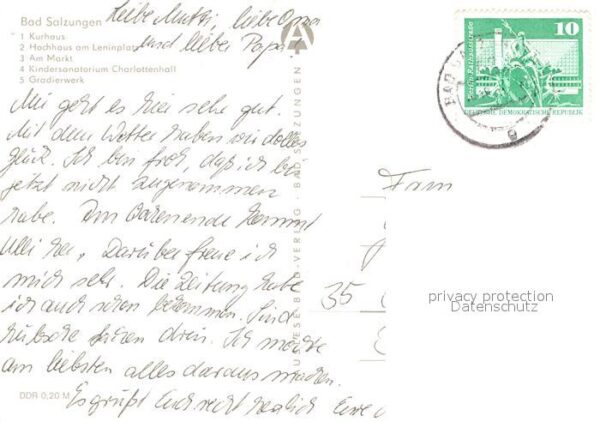 Liebe Mutti, liebe Oma
und lieber Papa
Bad Salzungen
1 Kurhaus
2 Hochhaus am Leninplatz
3 Am Markt
4 Kindersanatorium Charlottenhall
5 Gradierwerk
Mir geht es hier sehr gut.
Mit dem Wetter haben wir dolles
Glück. Ich bin froh, daß ich bis
jetzt nicht zugenommen
habe. Am Wochenende kommt
Ulli her, Darüber freue ich
mich sehr. Die Zeitung habe
ich auch schon bekommen. Sind
hübsche Sachen drin. Ich möchte
am liebsten alles daraus machen.
Es grüßt Euch recht herzlich Eure
DDR 0,20 M
BILD-VERLAG · BAD SALZUNGEN ·
10
DEUTSCHE DEMOKRATISCHE REPUBLIK
BAD
Frau
35
privacy protection
Datenschutz